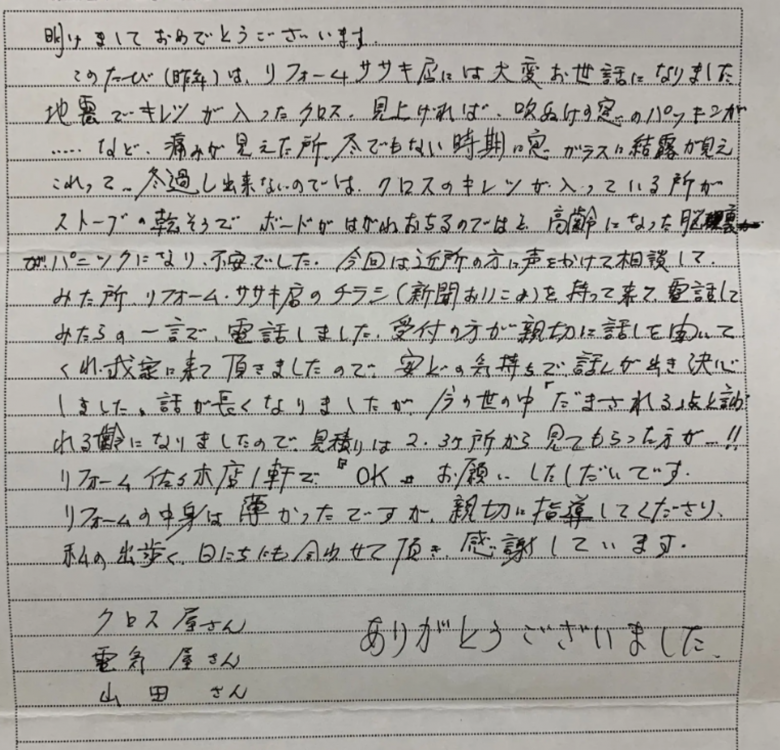 明けましておめでとうございます。
このたび(昨年)は、リフォームササキ店には大変お世話になりました
地震でキレツが入ったクロス、見上げれば、吹ぬけの窓のパッキンが
……など、痛みが見えた所、冬でもない時期に窓ガラスに結露が見え
これって…冬過し出来ないのでは、クロスのキレツが入っている所が
ストーブの乾そうでボードがはがれおちるのではと、高齢になった脳裏
が、パニックになり、不安でした。今回は近所の方に声をかけて相談して
みた所、リフォーム・ササキ店のチラシ(新聞おりこみ)を持って来て、電話して
みたらの一言で、電話しました。受付の方が親切に話しを聞いて
くれ、我家に来て頂きましたので、安どの気持ちで話しが出き決心
しました。話が長くなりましたが、今の世の中「だまされる」と言わ
れる齢になりましたので、見積りは2.3ヶ所から見てもらった方が…!!
リフォーム佐々木店1軒で『OK』お願いしたしだいです。
リフォームの中身は薄かったですが、親切に指導してくださり、
私の出歩く、日にちにも合わせて頂き、感謝しています。
クロス屋さん
電気屋さん
山田さん
ありがとうございました。